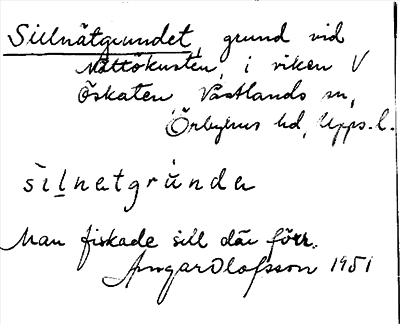 Sillnätgrundet, grund vid
Måttökusten, i viken V
Öskaten Västlands sn,
Örbyhus hd, Upps. l.
silnetgründer
Man fiskade sill där förr.
Olofsson 1951